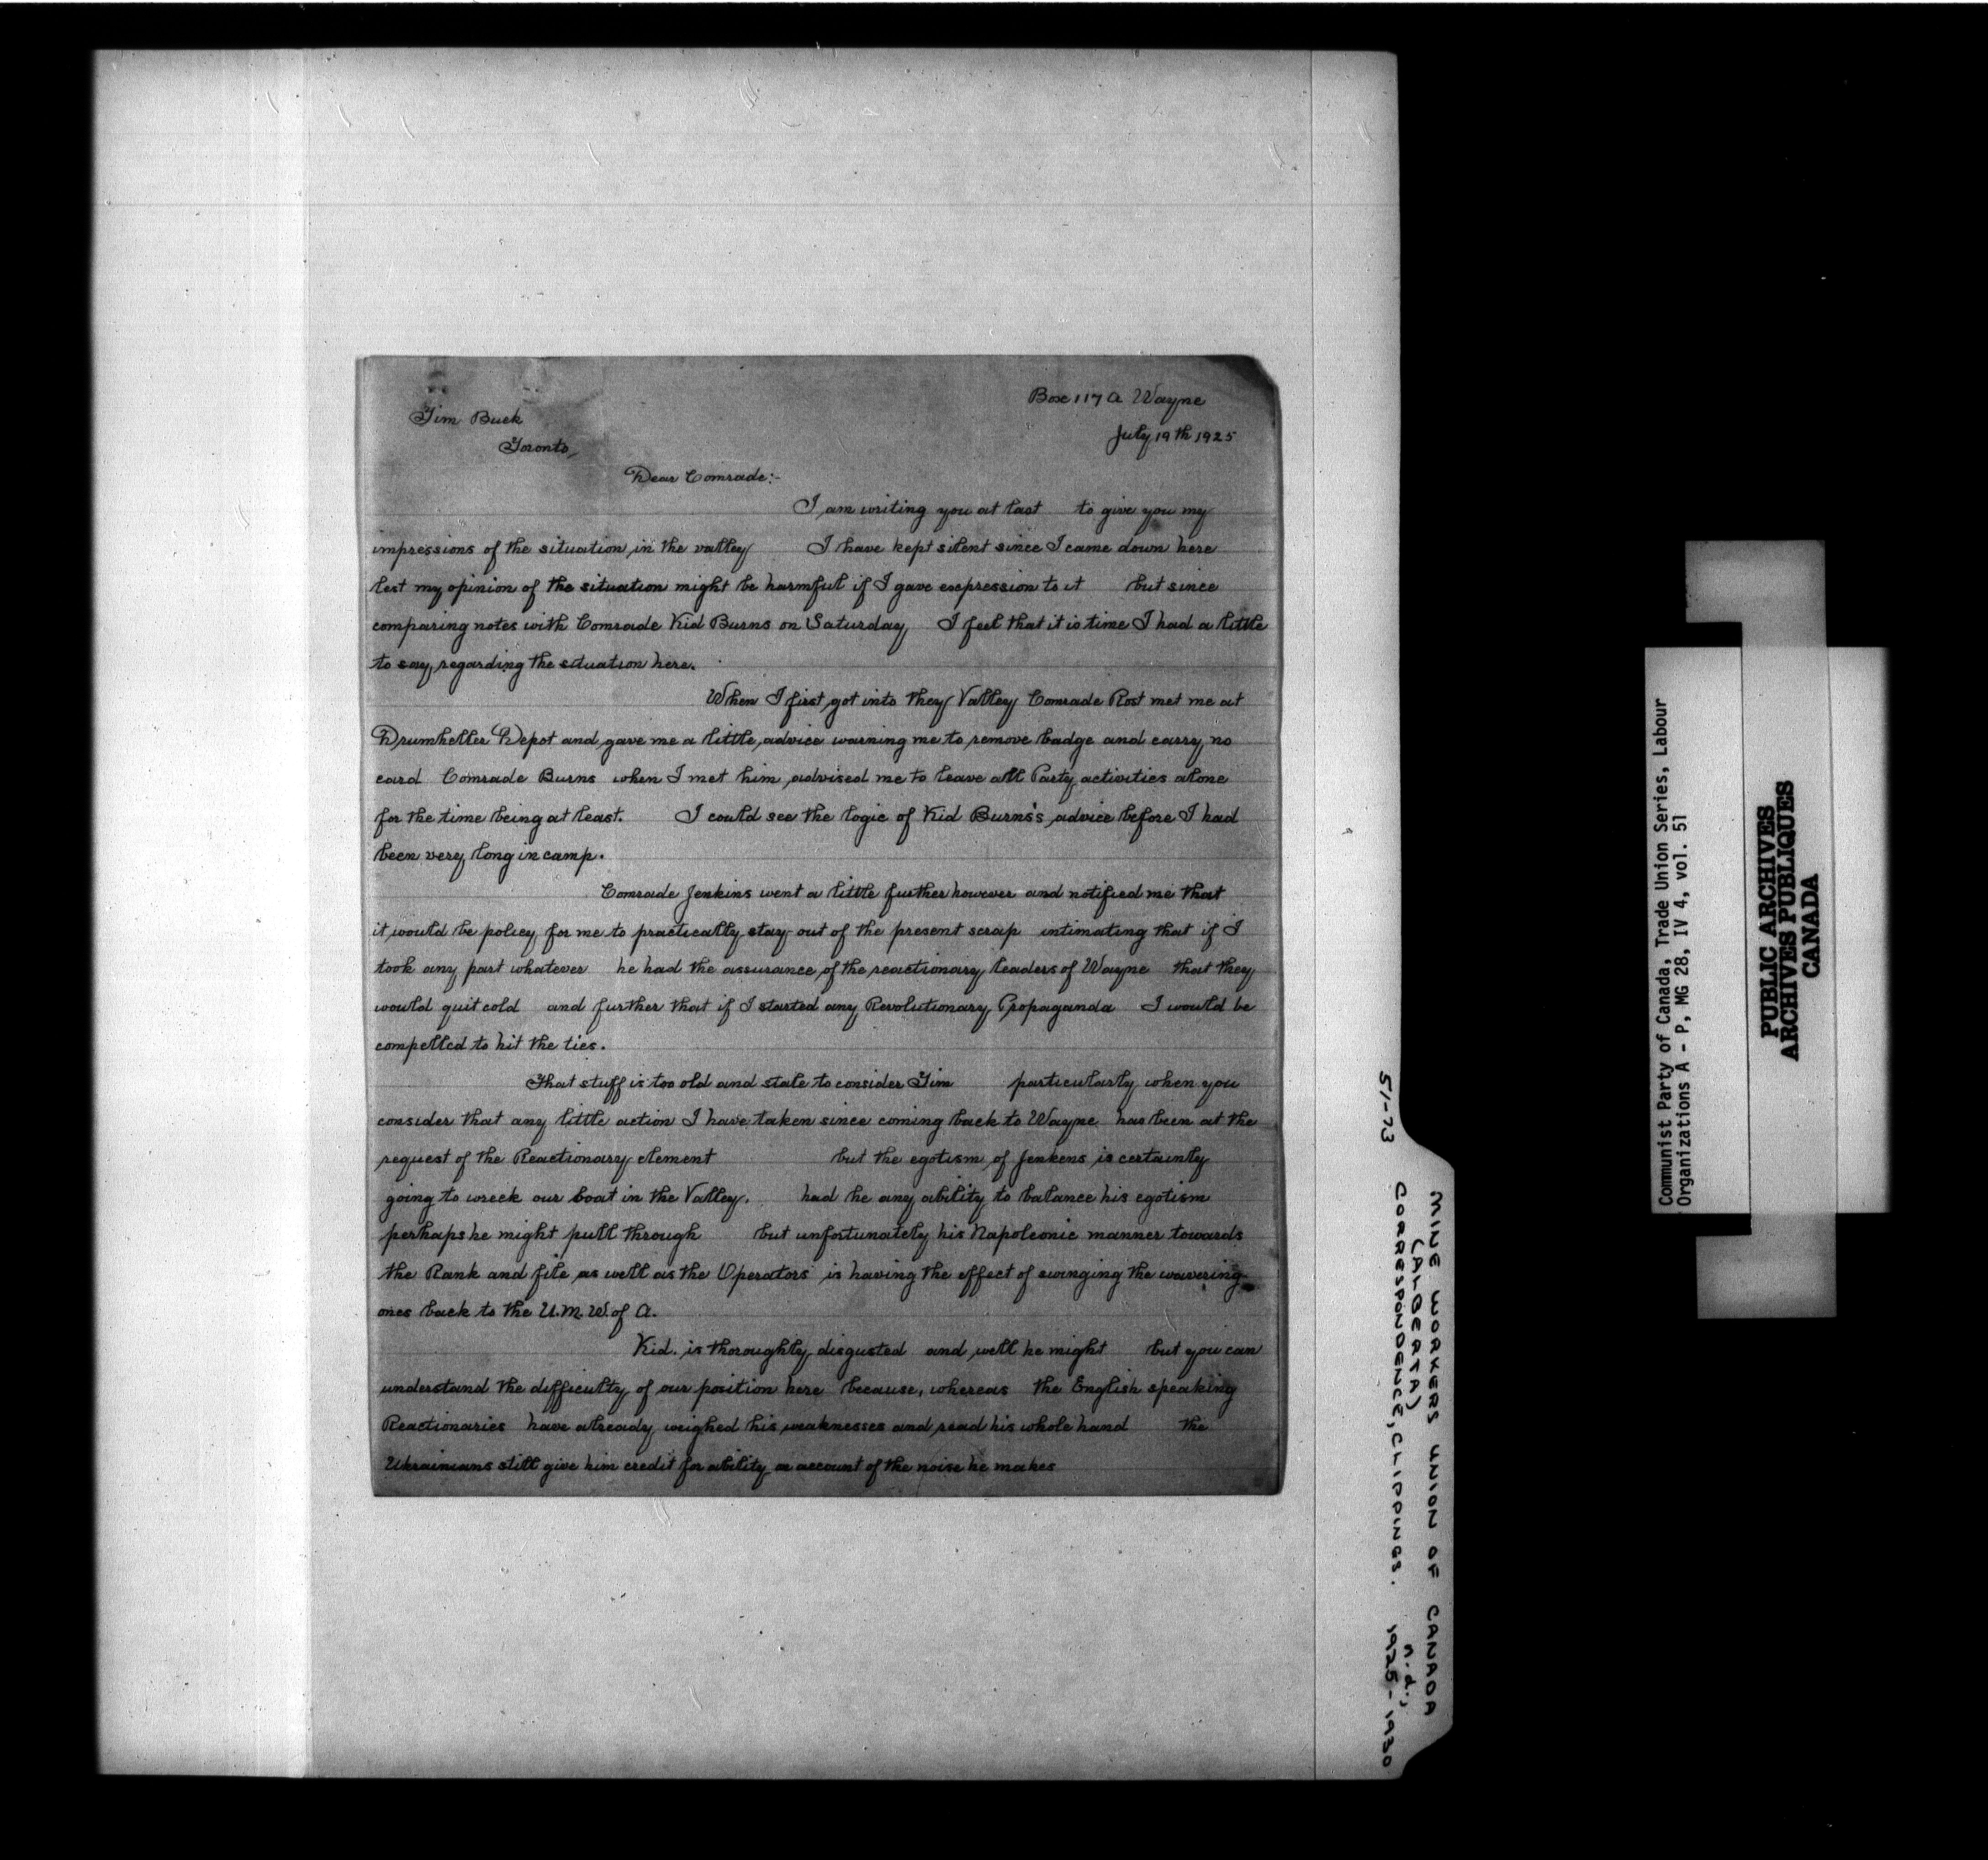 Box 117 A Wayne
July 19th 1925
Tim Buck
Toronto,
Dear Comrade:-
I am writing you at last to give you my
impressions of the situation in the valley I have kept silent since I came down here
lest my opinion of the situation might be harmful if I gave expression to it but since
comparing notes with Comrade Kid Burns on Saturday I feel that it is time I had a little
to say, regarding the situation here.
When I first got into they Valley Comrade Rost met me at
Drumheller Depot and gave me a little advice warning me to remove badge and carry no
card Comrade Burns when I met him advised me to leave all Party activities alone
for the time being at least. I could see the logic of Kid Burns's advice before I had
been very long in camp.
Comrade Jenkins went a little further however and notified me that
it would be policy for me to practically stay out of the present scrap intimating that if I
took any part whatever he had the assurance of the reactionary leaders of Wayne that they
would quit cold and further that if I started any Revolutionary Propaganda I would be
compelled to hit the ties.
That stuff is too old and stale to consider Tim particularly when you
consider that any little action I have taken since coming back to Wayne has been at the
request of the Reactionary element but the egotism of Jenkens is certainly
going to wreck our boat in the Valley. had he any ability to balance his egotism
perhaps he might pull through but unfortunately his Napoleonic manner towards
the Rank and file as well as the Operators is having the effect of swinging the wavering
ones back to the U.M.W. of A.
Kid. is thoroughly disgusted and well he might but you can
understand the difficulty of our position here because, whereas the English speaking
Reactionaries have already weighed his weaknesses and read his whole hand the
Ukrainians still give him credit for ability on account of the noise he makes
51-73
MINE WORKERS UNION OF CANADA
(ALBERTA)
CORRESPONDENCE, CLIPPINGS. n.d., 1925-1930
Communist Party of Canada, Trade Union Series, Labour
Organizations A - P, MG 28, IV 4, vol. 51
PUBLIC ARCHIVES
ARCHIVES PUBLIQUES
CANADA